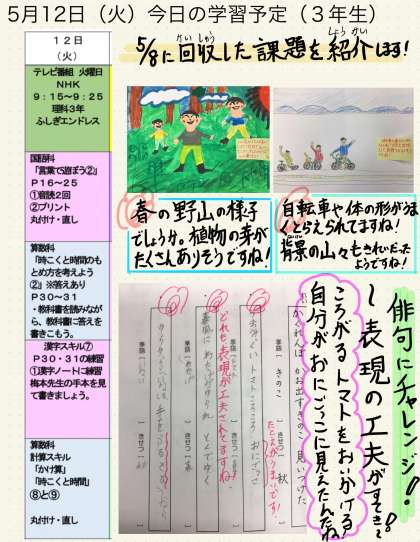 5月12日（火）今日の学習予定（３年生）
１２日
（火）
テレビ番組　火曜日
NHK
９：１５〜９：２５
理科３年
ふしぎエンドレス
国語科
「言葉で遊ぼう②」
P１６〜２５
①音読２回
②プリント
丸付け・直し
算数科
「時こくと時間のもとめ方を考えよう②」※答えあり
P３０〜３１
・教科書を読みながら、教科書に答えを書きこもう。
漢字スキル⑦
P３０・３１の練習
①漢字ノートに練習
梅本先生の手本を見て書きましょう。
算数科
計算スキル
「かけ算」
「時こくと時間」
⑧と⑨
丸付け・直し
5/8に回収した課題を紹介します!
かいしゅう
しょうかい
春の野山の様子
でしょうか。植物の芽が
たくさんありそうですね!
自転車や体の形がうま
くとらえられてますね!
背景の山々もきれいだった
ようですね!
俳句にチャレンジ!!
〜表現の工夫がすてき〜
ころがるトマトをおいかける
自分がおにごっこに見えたんだね!
かくれんぼ かお出すきのこ 見いつけた
季語（きのこ）きせつ（秋）
トマトころころ おにごっこ
たとえがうまいです!
どれも表現が工夫されてますね!
季語
きせつ